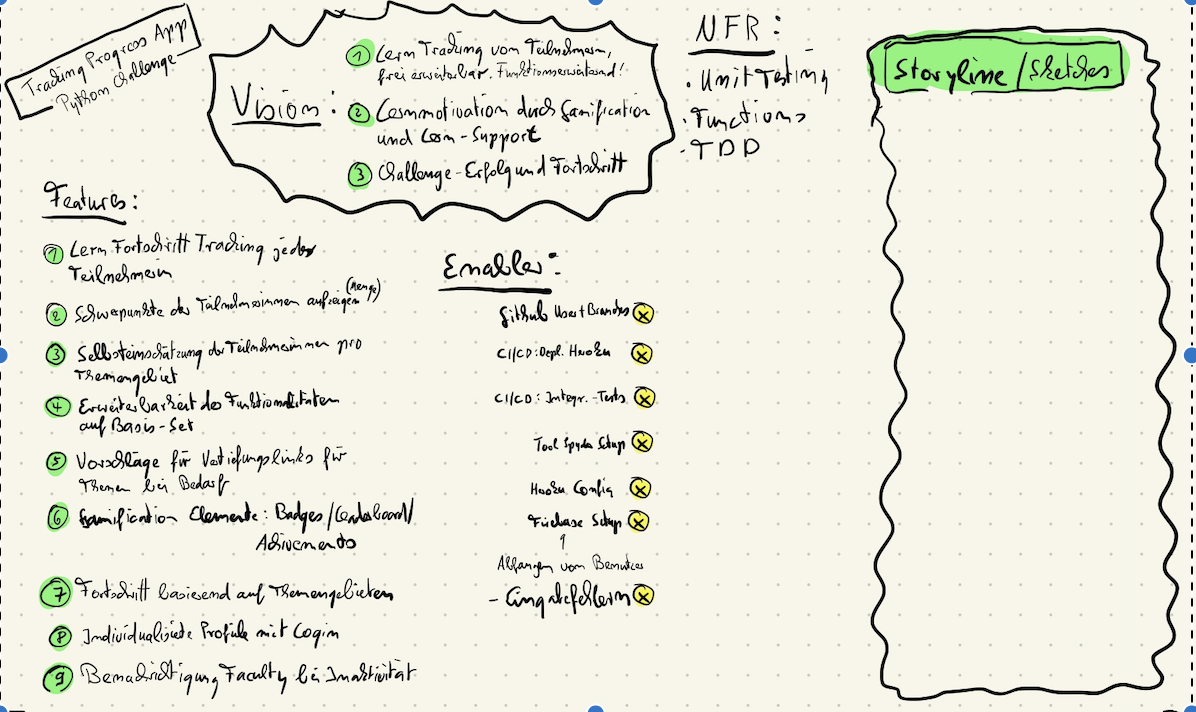 Trading Progress App
Python Challenge
Vision:
1 Lern Trading von Teilnehmern,
frei erweiterbar, Funktionserweiternd!
2 Lernmotivation durch Gamification
und Lern-Support
3 Challenge-Erfolg und Fortschritt
NFR:
· Unit Testing
· Functions
· TDD
Storyline / Sketches
Features:
1 Lern Fortschritt Trading jedes
Teilnehmers
2 Schwerpunkte der Teilnehmerinnen aufzeigen (Menge)
3 Selbsteinschätzung der Teilnehmerinnen pro
Themengebiet
4 Erweiterbarkeit der Funktionalitäten
auf Basis-Set
5 Vorschläge für Vertiefungslinks für
Themen bei Bedarf
6 Gamification Elemente: Badges / Leaderboard /
Achivements
7 Fortschritt basierend auf Themengebieten
8 Individualisierte Profile mit Login
9 Benachrichtigung Faculty bei Inaktivität
Enabler:
Github User + Branches
CI/CD: Depl. Heroku
CI/CD: Integr.-Tests
Tool Spyder Setup
Heroku Config
Firebase Setup
Abfangen von Benutzer
- Eingabefehlern